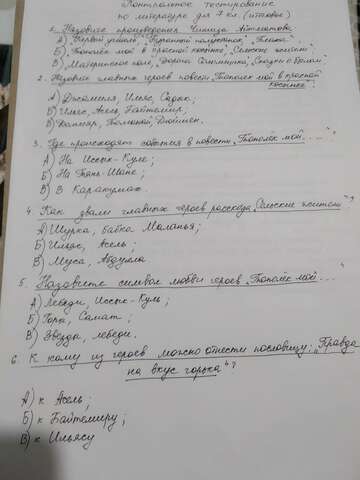 Контрольное тестирование
по литературе для 7 кл. (итоговое)
1. Назовите произведения Чингиза Айтматова
А) "Первый учитель", "Буранный полустанок", "Плаха"
Б) "Тополёк мой в красной косынке", "Сельские жители"
В) "Материнское поле",
2. Назовите главных героев повести "Тополёк мой в красной
косынке"
А) Джамиля, Ильяс, Садык;
Б) Ильяс, Асель, Байтемир;
В) Данияр, Толгонай, Дюйшен.
3. Где происходят события в повести "Тополёк мой..."?
А) На Иссык-Куле;
Б) На Тянь-Шане;
В) В Каракумах.
4. Как звали главных героев рассказа "Сельские жители"?
А) Шурка, бабка Маланья;
Б) Ильяс, Асель;
В) Муса, Абдулла
5. Назовите символ любви героев "Тополёк мой..."
А) Лебеди, Иссык-Куль;
Б) Гора, Самат;
В) Звезда, лебеди.
6. К кому из героев можно отнести пословицу: "Правда
на вкус горька"?
А) к Асель;
Б) к Байтемиру;
В) к Ильясу